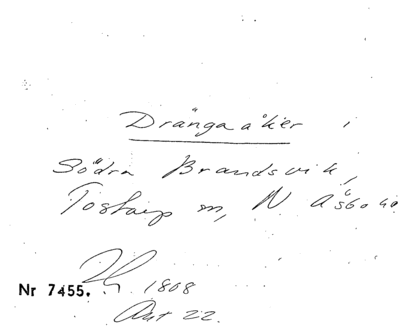 Drängaåker i
Södra Brandsvik,
Tostarp sn, N Åsbo hd
Nr 7455. 1808
Akt 22.